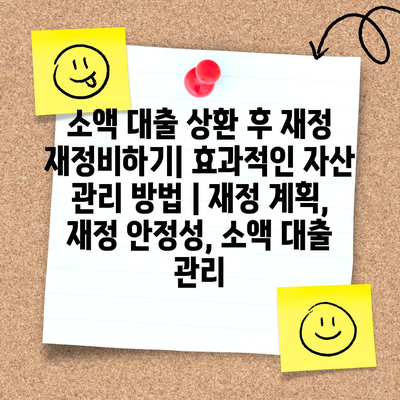 소액 대출 상환 후 재정
재정비하기| 효과적인 자산
관리 방법 | 재정 계획,
재정 안정성, 소액 대출
관리